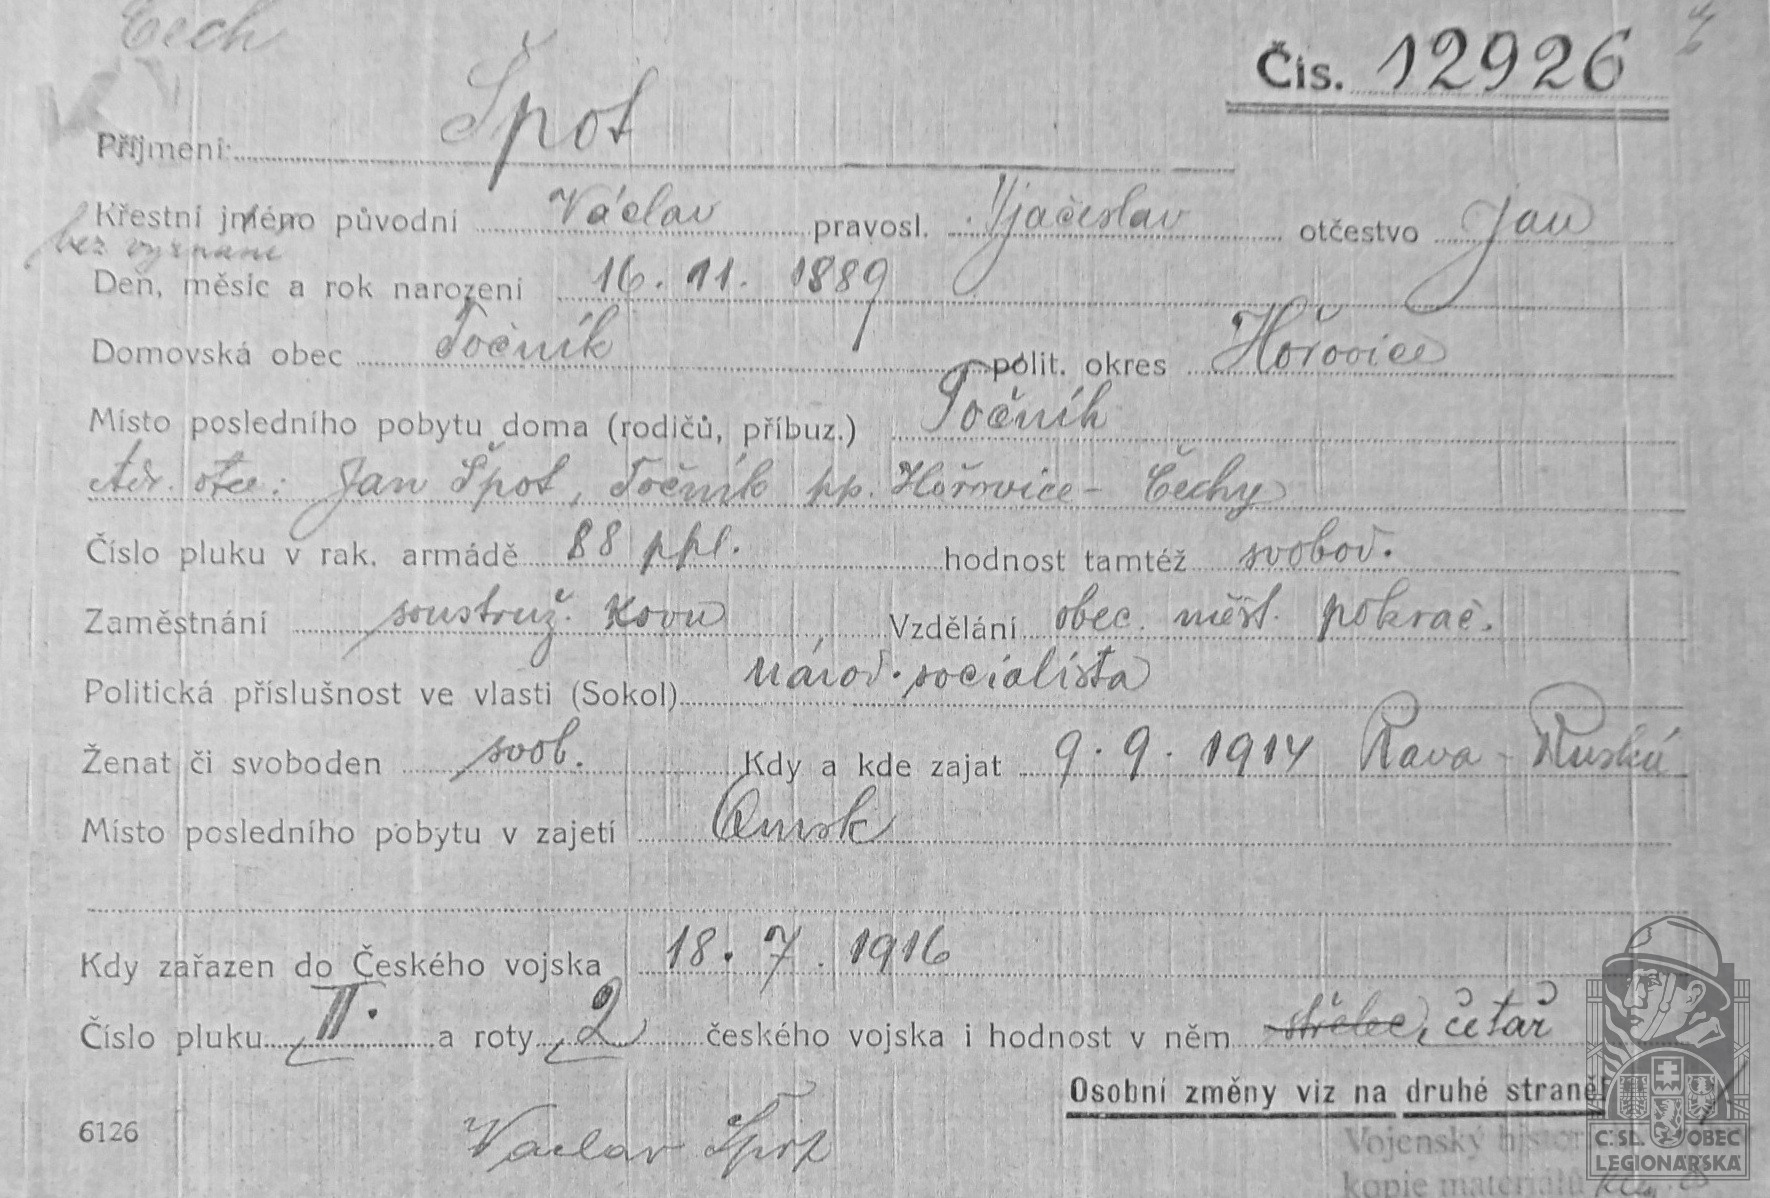 Čech
Čís. 12926
Příjmení: Špot
Křestní jméno původní Václav pravosl. Vjačeslav otčestvo Jan
bez vyznání
Den, měsíc a rok narození 16. 11. 1889
Domovská obec Točník polit. okres Hořovice
Místo posledního pobytu doma (rodičů, příbuz.) Točník
Adr. otce: Jan Špot, Točník pp. Hořovice - Čechy
Číslo pluku v rak. armádě 88 ppl. hodnost tamtéž svobod.
Zaměstnání soustruž. kovu Vzdělání obec. měšt. pokrač.
Politická příslušnost ve vlasti (Sokol) národ. socialista
Ženat či svoboden svob. Kdy a kde zajat 9. 9. 1914 Rava - Ruská
Místo posledního pobytu v zajetí Omsk
Kdy zařazen do Českého vojska 18. 7. 1916
Číslo pluku II. a roty 2 českého vojska i hodnost v něm střelec, četař
Osobní změny viz na druhé straně!
6126
Václav Špot
Vojenský histor
kopie materiálu
Č. SL. OBEC
LEGIONÁŘSKÁ